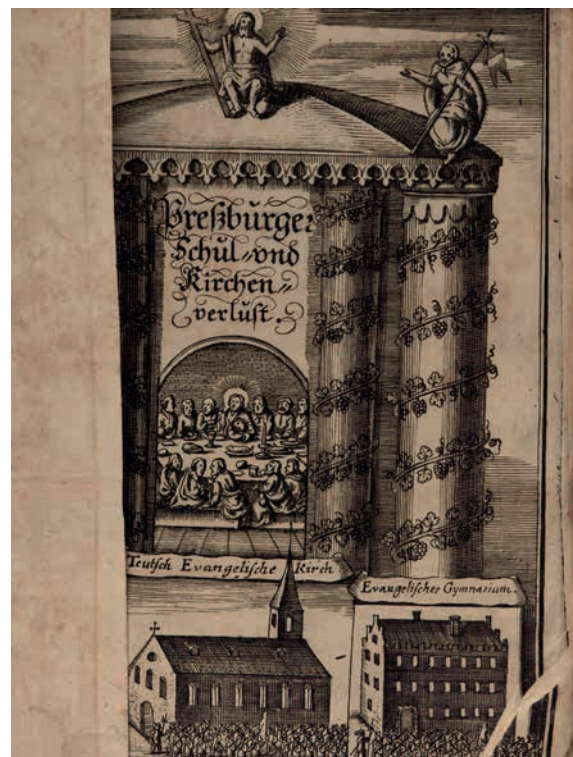 Preßburger
Schul⸗vnd
Kirchen⸗
verlust.
Teutsch Evangelische Kirch
Evangelisches Gymnasium.